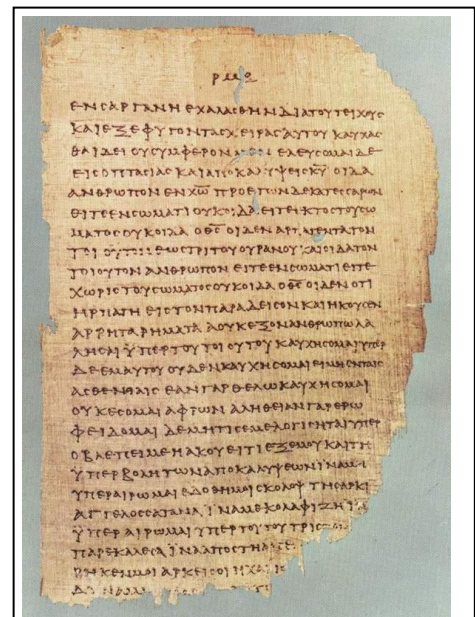 ΕΝϹΑΡΓΑΝΗΕΧΑΛΑϹΘΗΝΔΙΑΤΟΥΤΕΙΧΟΥϹ
ΚΑΙΕΞΕΦΥΓΟΝΤΑϹΧΕΙΡΑϹΑΥΤΟΥΚΑΥΧΑϹ
ΘΑΙΔΕΙΟΥϹΥΜΦΕΡΟΝ ΜΕΝ ΕΛΕΥϹΟΜΑΙΔΕ
ΕΙϹΟΠΤΑϹΙΑϹΚΑΙΑΠΟΚΑΛΥΨΕΙϹΚ̅Υ̅ ΟΙΔΑ
ΑΝΘΡΩΠΟΝΕΝΧ̅Ω̅ ΠΡΟΕΤΩΝΔΕΚΑΤΕϹϹΑΡΩΝ
ΕΙΤΕΕΝϹΩΜΑΤΙΟΥΚΟΙΔΑ ΕΙΤΕΕΚΤΟϹΤΟΥϹΩ
ΜΑΤΟϹΟΥΚΟΙΔΑ ΟΘ̅Ϲ̅ΟΙΔΕΝΑΡΠΑΓΕΝΤΑΤΟΝ
ΤΟΙΟΥΤΟΝΕΩϹΤΡΙΤΟΥΟΥΡΑΝΟΥΚΑΙΟΙΔΑΤΟΝ
ΤΟΙΟΥΤΟΝΑΝΘΡΩΠΟΝΕΙΤΕΕΝϹΩΜΑΤΙΕΙΤΕ
ΧΩΡΙϹΤΟΥϹΩΜΑΤΟϹΟΥΚΟΙΔΑΟΘ̅Ϲ̅ΟΙΔΕΝΟΤΙ
ΗΡΠΑΓΗΕΙϹΤΟΝΠΑΡΑΔΕΙϹΟΝΚΑΙΗΚΟΥϹΕΝ
ΑΡΡΗΤΑΡΗΜΑΤΑ ΑΟΥΚΕΞΟΝΑΝΘΡΩΠΩΛΑ
ΛΗϹΑΙΫΠΕΡΤΟΥΤΟΙΟΥΤΟΥΚΑΥΧΗϹΟΜΑΙΥΠΕΡ
ΔΕΕΜΑΥΤΟΥΟΥΔΕΝΚΑΥΧΗϹΟΜΑΙΕΙΜΗΕΝΤΑΙϹ
ΑϹΘΕΝΕΙΑΙϹ ΕΑΝΓΑΡΘΕΛΩΚΑΥΧΗϹΟΜΑΙ
ΟΥΚΕϹΟΜΑΙΑΦΡΩΝ ΑΛΗΘΕΙΑΝΓΑΡΕΡΩ
ΦΕΙΔΟΜΑΙ ΔΕΜΗΤΙϹΕΜΕΛΟΓΙϹΗΤΑΙΥΠΕΡ
ΟΒΛΕΠΕΙΜΕΗΑΚΟΥΕΙΤΙΕΞΕΜΟΥΚΑΙΤΗ
ΫΠΕΡΒΟΛΗΤΩΝΑΠΟΚΑΛΥΨΕΩΝΪΝΑΜΗ
ΥΠΕΡΑΙΡΩΜΑΙΕΔΟΘΗΜΟΙϹΚΟΛΟΨΤΗϹΑΡΚΙ
ΑΓΓΕΛΟϹϹΑΤΑΝΑΪΝΑΜΕΚΟΛΑΦΙΖΗΪ
ΫΠΕΡΑΙΡΩΜΑΙΥΠΕΡΤΟΥΤΟΥΤΡΙϹ
ΠΑΡΕΚΑΛΕϹΑΪΝΑΑΠΟϹΤΗ
ΡΗΚΕΝΜΟΙΑΡΚΕΙϹΟΙΗΧΑΡΙϹ